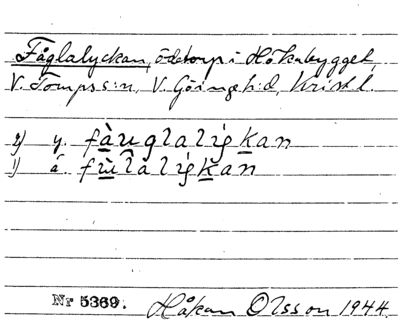 Fåglalyckan, ödetorp i Hökabygget,
V. Torups s:n, V. Göinge h:d, Kristl.
2) y. fàuglalıskan
1) ä. fùlalıskan
Nr 5369. Håkan Olsson 1944.